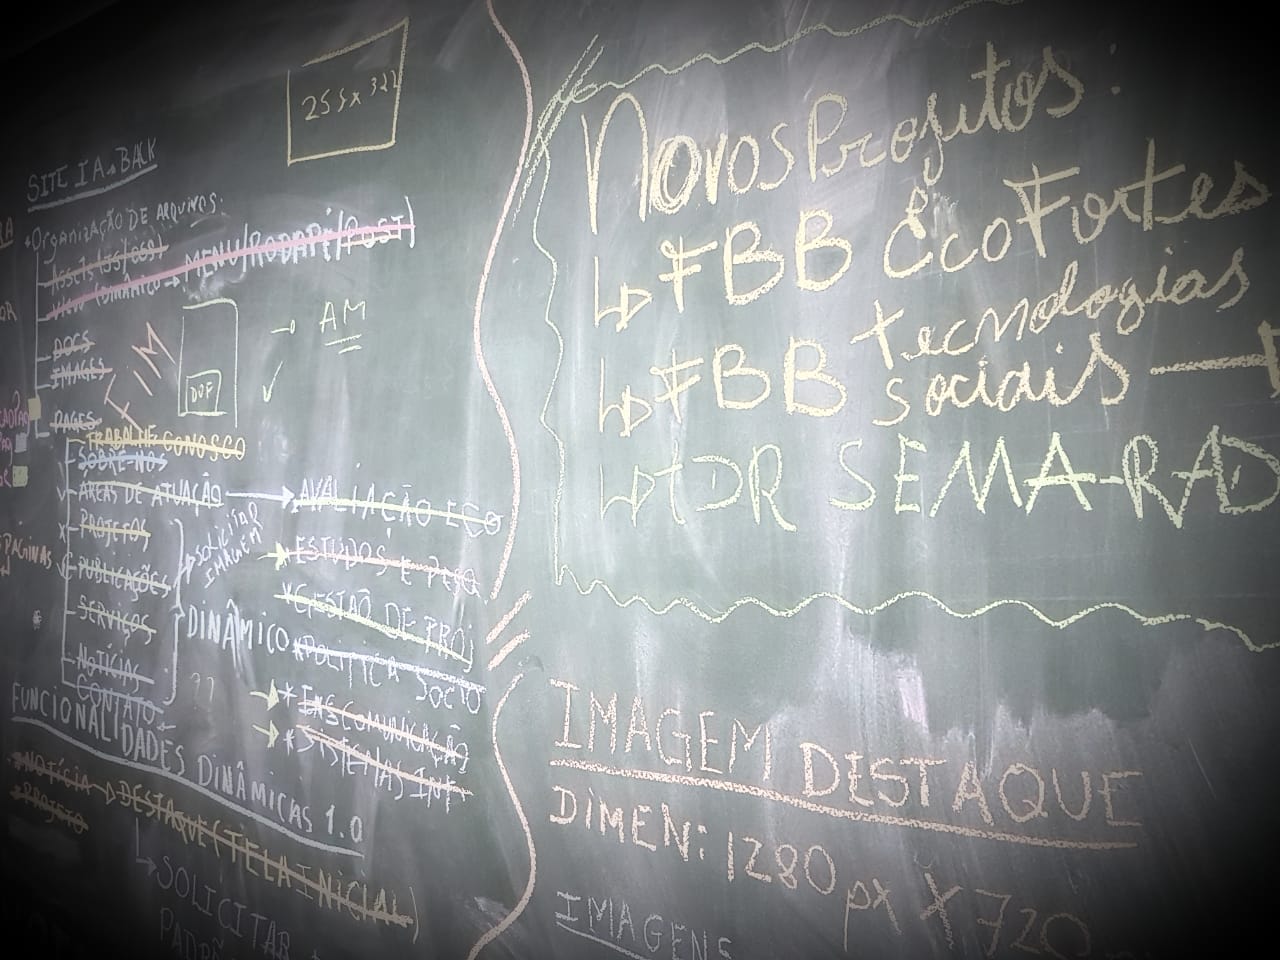 255x322
SITE IABACK
*Organização DE ARQUIVOS:
ASSETS (JS/CSS)
(DINÂMICO → MENU/RODAPÉ/POST)
DOCS
IMAGES
PAGES
TRABALHE CONOSCO
SOBRE-NÓS
ÁREAS DE ATUAÇÃO → AVALIAÇÃO ECO
PROJETOS
PUBLICAÇÕES
SERVIÇOS
NOTÍCIAS
CONTATO
SOLICITAR
IMAGEM
DINÂMICO
??
* ESTUDOS E PESQ
* GESTÃO DE PROJ
* POLÍTICA SOCIO
* ENS COMUNICAÇÃO
* SISTEMAS INT
→ AM
PÁGINAS
FUNCIONALIDADES DINÂMICAS 1.0
*NOTÍCIA → DESTAQUE (TELA INICIAL)
*PROJETO
↳ SOLICITAR
Novos Projetos:
↳ FBB EcoFortes
↳ FBB tecnologias
sociais →
↳ TDR SEMA-RAD
IMAGEM DESTAQUE
DIMEN: 1280 px X 720
IMAGENS